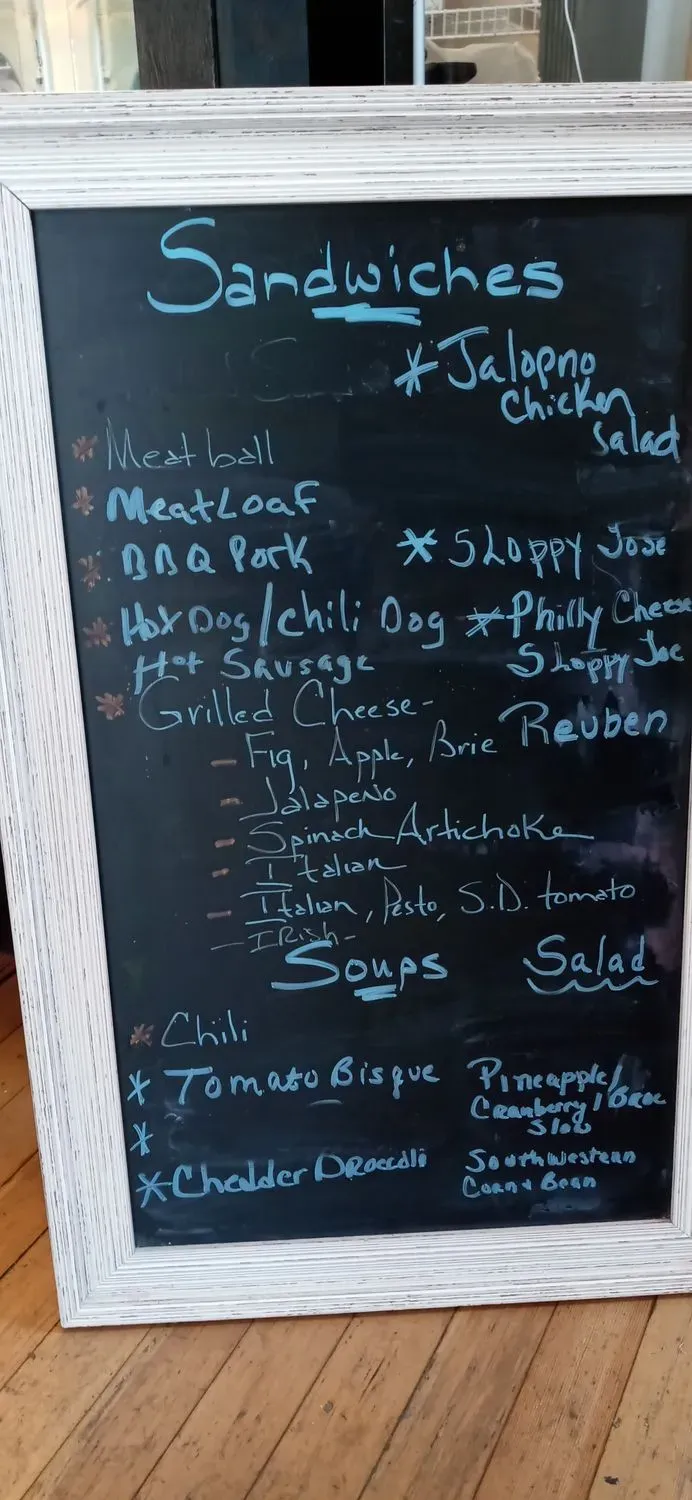 Sandwiches
* Jalopno
Chicken
Salad
* Meatball
* MeatLoaf
* BBQ Pork
* SLoppy Jose
* Hot Dog/Chili Dog
* Philly Cheese
SLoppy Joe
Hot Sausage
* Grilled Cheese-
Reuben
- Fig, Apple, Brie
- Jalapeno
- Spinach Artichoke
- Italian
- Italian, Pesto, S.D. tomato
- IRish-
Soups
Salad
* Chili
* Tomato Bisque
Pineapple/
Cranberry/
Slow
*
* Chedder Broccoli
Southwestern
Corn + Bean